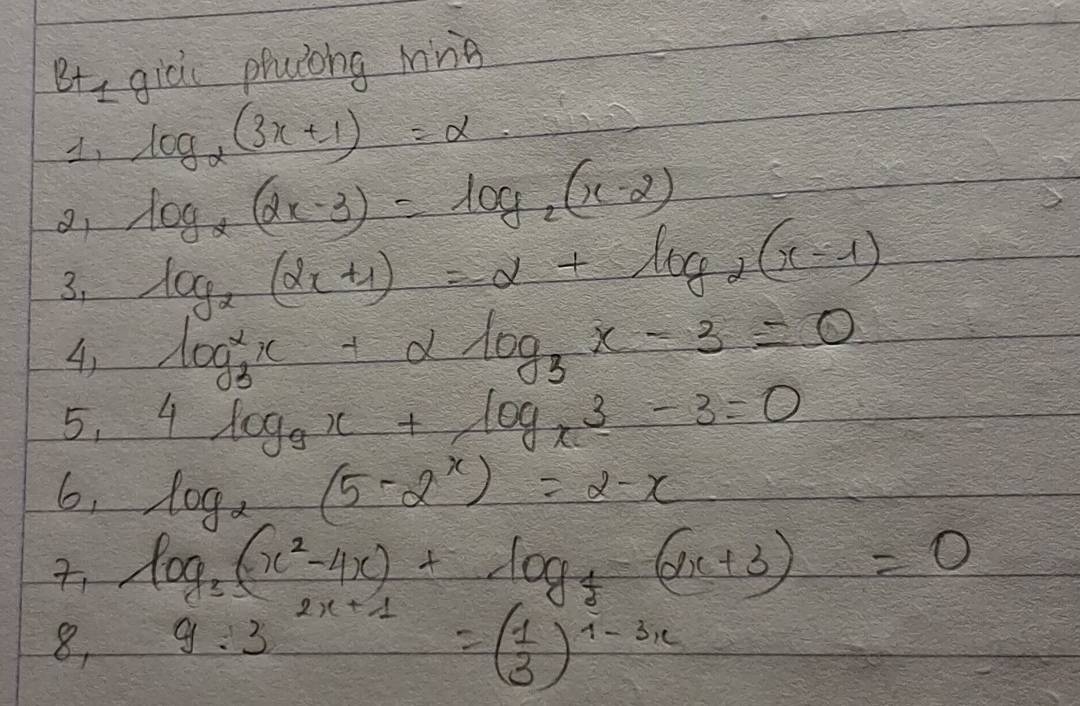 Bt1 giải phương trình
1, log₂(3x+1) = 2
2, log₂(2x-3) = log₂(x-2)
3, log₂(2x+1) = 2 + log₂(x-1)
4, log₃²x + 2 log₃ x - 3 = 0
5, 4 log₉ x + logₓ 3 - 3 = 0
6, log₂ (5-2ˣ) = 2-x
7, log₃(x²-4x) + log_{1/3} (2x+3) = 0
8, 9 . 3^{2x+1} = (1/3)^{1-3x}